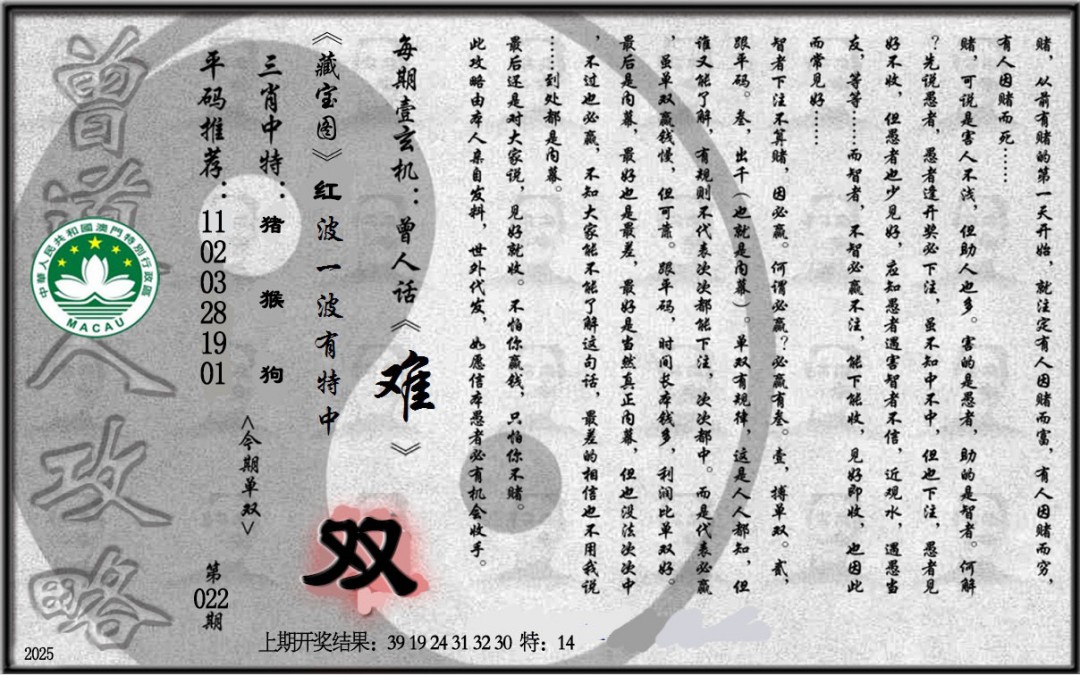 赌，从前有赌的第一天开始，就注定有人因赌而富，有人因赌而穷，
有人因赌而死……
赌，可说是害人不浅，但助人也多。害的是愚者，助的是智者。何解
？先说愚者，愚者逢开奖必下注，虽不知中不中，但也下注，愚者见
好不收，但愚者也少见好，应知愚者遇害智者不信，近观水，遇愚当
友，等等……而智者，不智必赢不注，能下能收，见好即收，也因此
而常见好……
智者下注不算赌，因必赢。何谓必赢？必赢有叁。壹，搏单双。贰，
跟平码。叁，出千（也就是内幕）。单双有规律，这是人人都知，但
谁又能了解，有规则不代表次次都能下注，次次都中。而是代表必赢
，虽单双赢钱慢，但可靠。跟平码，时间长本钱多，利润比单双好。
最后是内幕，最好也是最差，最好是当然真正内幕，但也没法次次中
，不过也必赢，不知大家能不能了解这句话，最差的相信也不用我说
……到处都是内幕。
最后还是对大家说，见好就收。不怕你赢钱，只怕你不赌。
此攻略由本人亲自发料，世外代发，如愿信本愚者必有机会收手。
每期壹玄机：曾人话《难》
《藏宝图》红波一波有特中
双
三肖中特：猪 猴 狗
<今期单双>
平码推荐：11 02 03 28 19 01
第022期
曾道人攻略
中華人民共和國澳門特別行政區
MACAU
上期开奖结果：39 19 24 31 32 30 特：14
2025